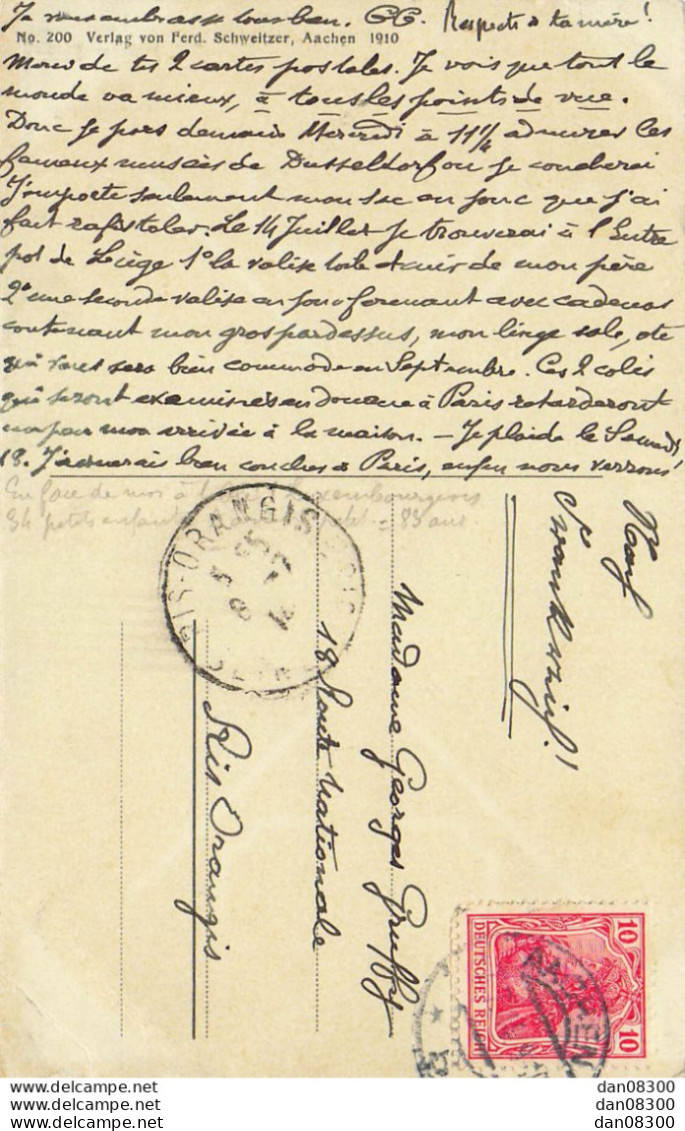 Je vous embrasse tous ben. GG. Respects à ta mère!
No. 200 Verlag von Ferd. Schweitzer, Aachen 1910
de tes 2 cartes postales. Je vois que tout le
monde va mieux, à tous les points de vue.
Donc je pars demain Mercredi à 11 1/4 admirer les
fameux musées de Dusseldorf où je coucherai
J'emporte seulement mon sac en jonc que j'ai
fait rafistoler. Le 14 Juillet je trouverai à l'Entre
pot de Liège 1° la valise toile & cuir de mon père
2° une seconde valise en jonc fermant avec cadenas
contenant mon gros pardessus, mon linge sale, etc
sera bien commode en Septembre. Ces 2 colis
qui seront examinés en douane à Paris retarderont
un peu mon arrivée à la maison. — Je plaide le Samedi
18. J'aimerais ben coucher à Paris, enfin nous verrons!
En face de moi à Luxembourgeois
34 petits enfants 83 ans
RIS-ORANGIS
Frankreich!
Madame Georges Gruffy
18 Route Nationale
Ris Orangis
10 10
DEUTSCHES REICH
AACHEN
dan08300
dan08300
dan08300